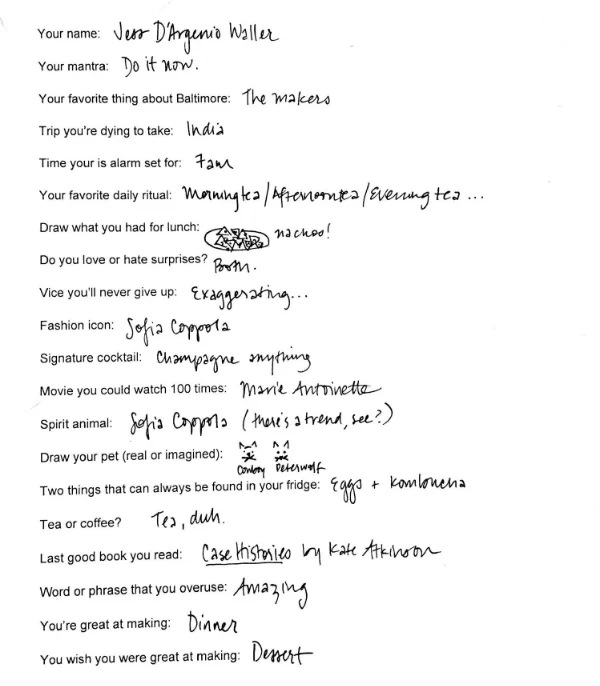 Your name: Jess D'Argenio Waller
Your mantra: Do it now.
Your favorite thing about Baltimore: The makers
Trip you're dying to take: India
Time your is alarm set for: 7am
Your favorite daily ritual: Morning tea/Afternoon tea/Evening tea ...
Draw what you had for lunch: nachos!
Do you love or hate surprises? Both.
Vice you'll never give up: Exaggerating...
Fashion icon: Sofia Coppola
Signature cocktail: Champagne anything
Movie you could watch 100 times: Marie Antoinette
Spirit animal: Sofia Coppola (there's a trend, see?)
Draw your pet (real or imagined):
Peterwolf
Two things that can always be found in your fridge: Eggs + Kombucha
Tea or coffee? Tea, duh.
Last good book you read: Case Histories by Kate Atkinson
Word or phrase that you overuse: Amazing
You're great at making: Dinner
You wish you were great at making: Dessert